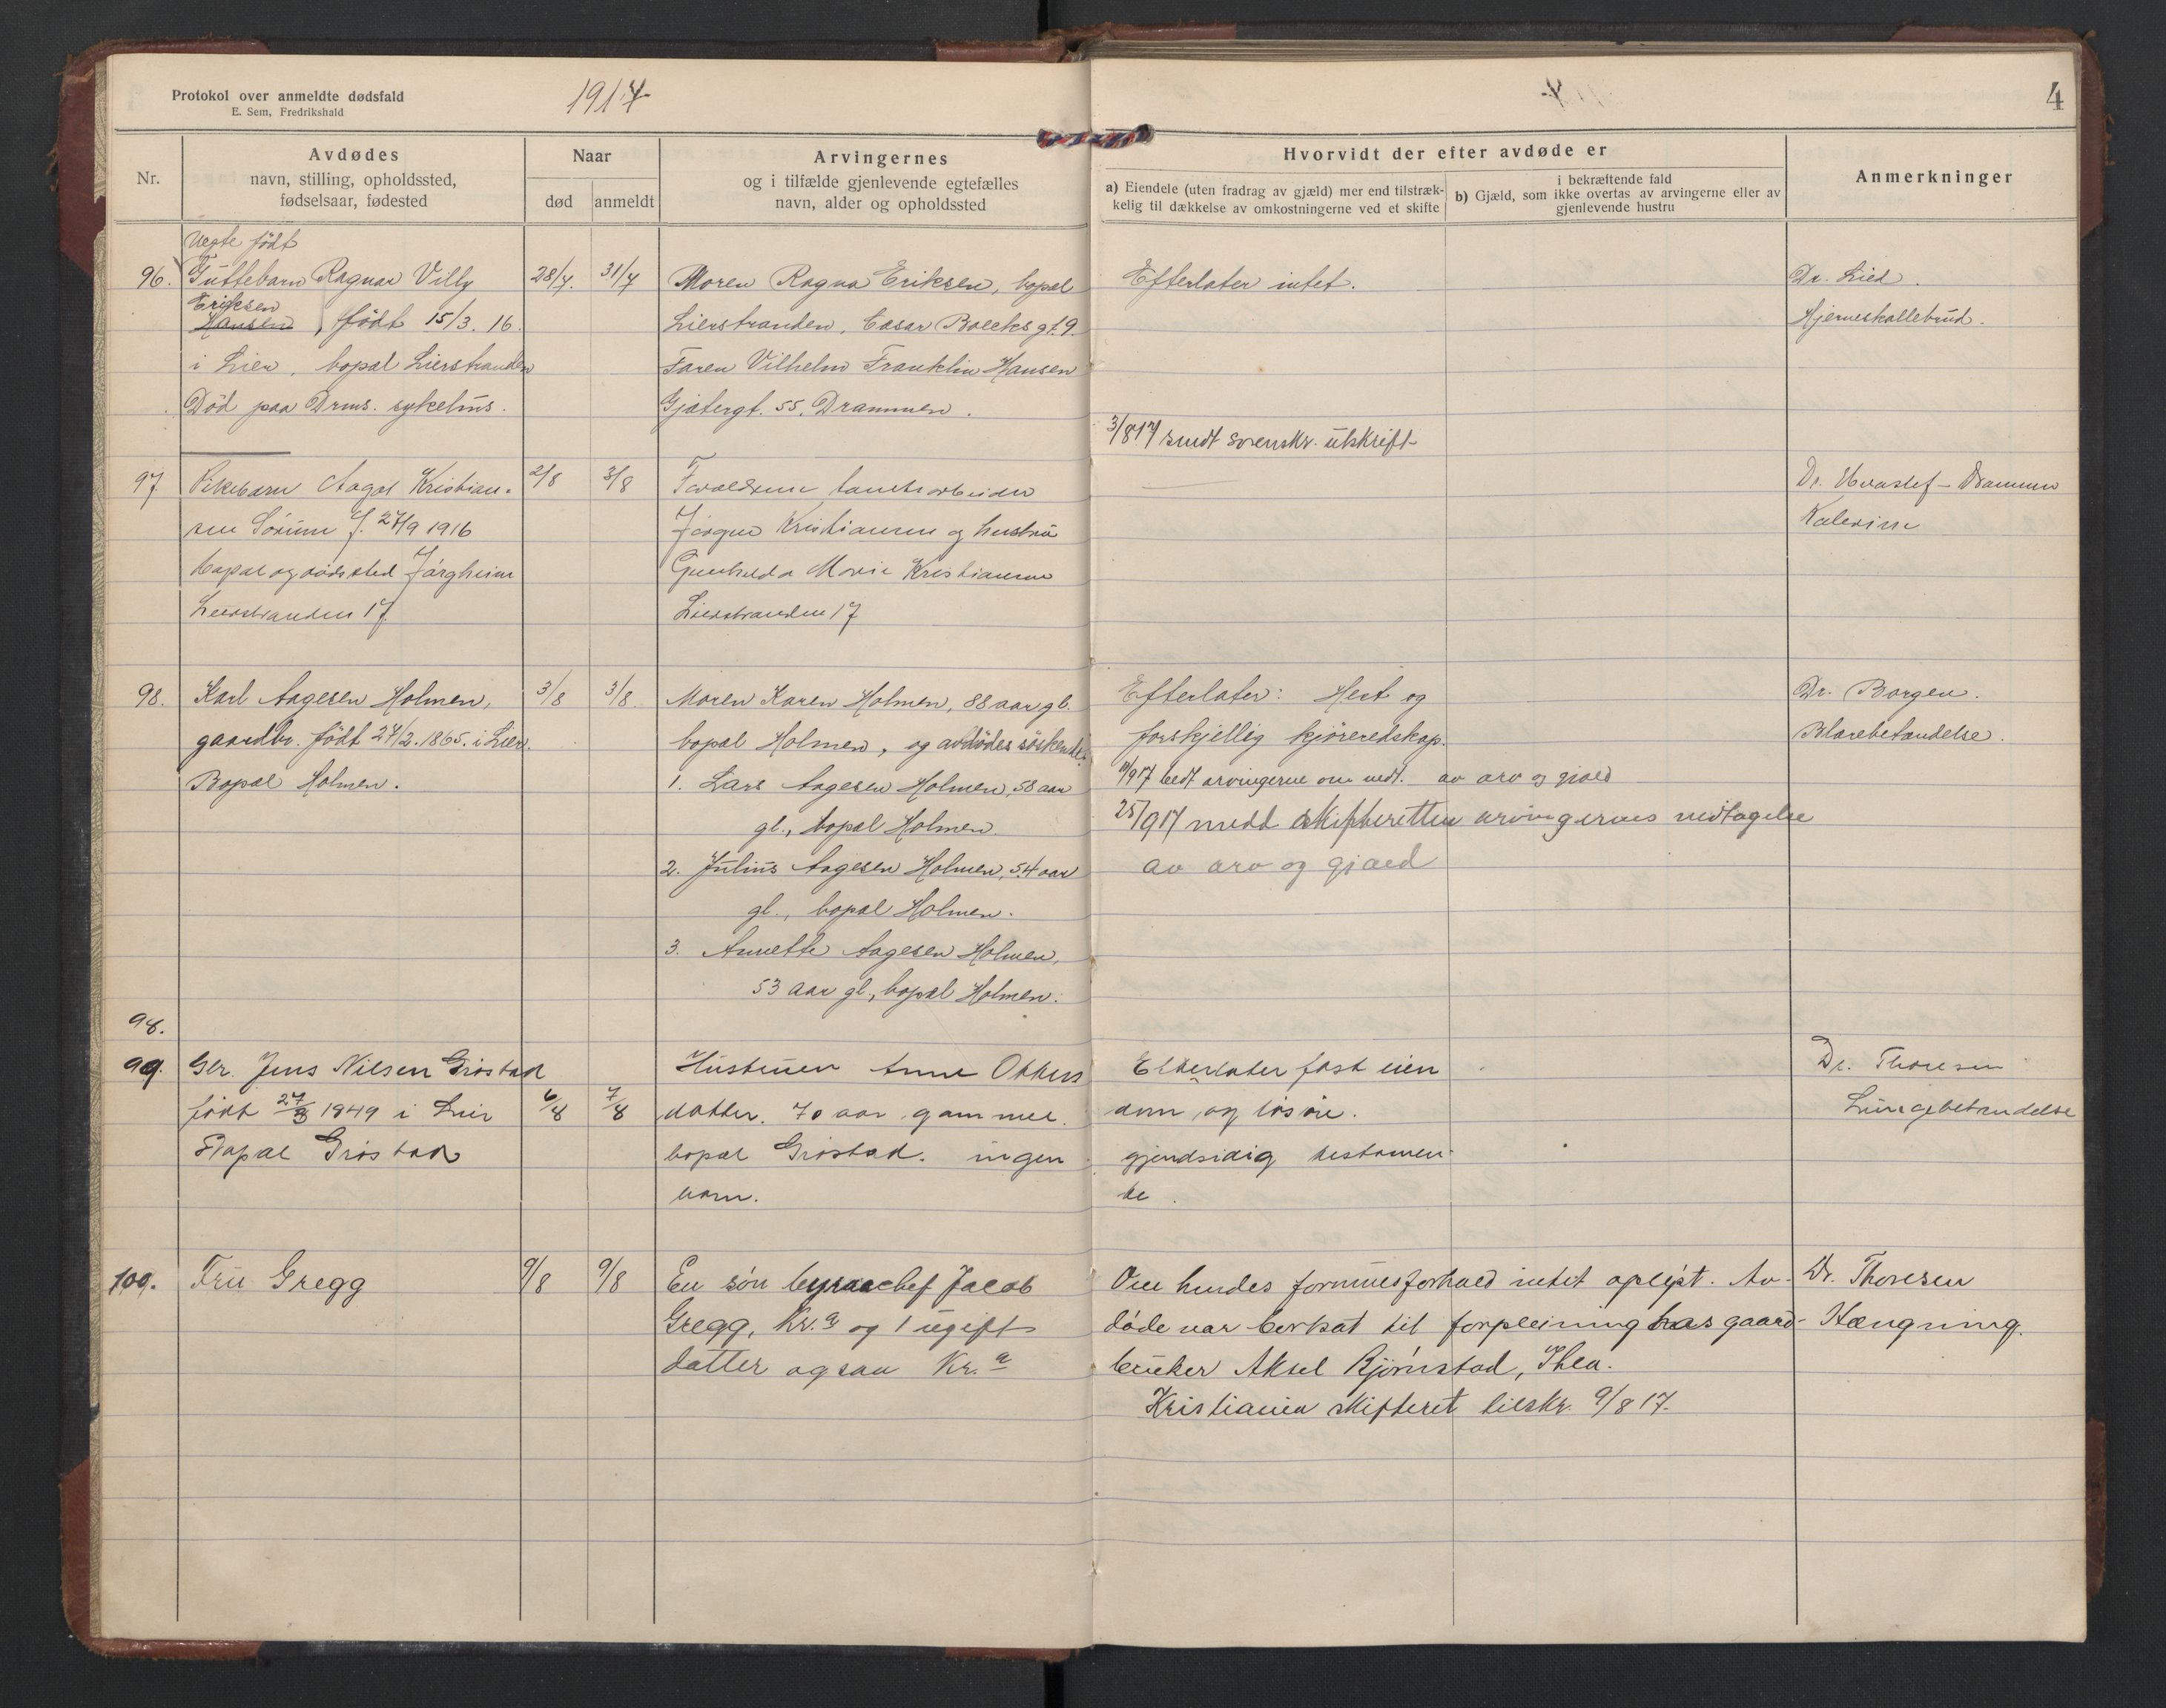 Protokol over anmeldte dødsfald
E. Sem, Fredrikshald
1917
4
Nr.
Avdødes
navn, stilling, opholdssted,
fødselsaar, fødested
Naar
død
anmeldt
Arvingernes
og i tilfælde gjenlevende egtefælles
navn, alder og opholdssted
Hvorvidt der efter avdøde er
a) Eiendele (uten fradrag av gjæld) mer end tilstræk-
kelig til dækkelse av omkostningerne ved et skifte
i bekræftende fald
b) Gjæld, som ikke overtas av arvingerne eller av
gjenlevende hustru
Anmerkninger
Uegte født
96. Guttebarn Ragnar Villy
Eriksen
Hansen, født 15/3. 16.
i Lier, bopæl Lierstranden
Död paa Drms. sykehus.
28/7.
31/7
Moren Ragna Eriksen, bopæl
Lierstranden, Cæsar Boecks gt. 9.
Faren Vilhelm Franklin Hansen
Gjætergt. 55, Drammen.
Efterlater intet.
3/8 17 sendt sorenskr. utskrift
Dr. Lied.
Hjerneskallebrud.
97 Pikebarn Aagot Kristian-
sen Sörum f. 27/9 1916
bopæl og dødssted Jårgheim
Lierstranden 17
2/8
3/8
Forældrene tomtearbeider
Jörgen Kristiansen og hustru
Gunhilda Marie Kristiansen
Lierstranden 17
Drammen
98. Karl Aagesen Holmen,
gaardbr. født 27/2. 1865. i Lier.
Bopæl Holmen.
3/8
3/8
Moren Karen Holmen, 88 aar gl.
bopæl Holmen, og avdödes söskende:
1. Lars Aagesen Holmen, 58 aar
gl., bopæl Holmen.
2. Julius Aagesen Holmen, 54 aar
gl., bopæl Holmen.
3. Annette Aagesen Holmen,
53 aar gl., bopæl Holmen.
Efterlater: Hest og
forskjellig kjöreredskap.
bedt arvingerne om vedt. av arv og gjæld
25/9 17 medd skifteretten arvingernes vedtagelse
av arv og gjæld
Dr. Borgen.
Blærebetændelse.
98.
99. Gbr. Jens Nilsen Gröstad
født 1849 i Lier
Bopæl Gröstad
6/8
7/8
Hustruen Anne Otters
datter. 70 aar gammel.
bopæl Gröstad. ingen
barn.
Efterlater fast eien
dom, og lösöre.
gjendsidig testamen-
te.
Dr. Thoresen
Lungebetændelse
100. Fru Gregg
9/8
9/8
En sön byraachef Jacob
Gregg, Kr.a og 1 ugift
datter ogsaa Kr.a
Om hendes formuesforhold intet oplyst. Av-
döde var bortsat til forpleining hos gaard-
bruker Aksel Bjørnstad, Ihlen.
Kristiania skifteret tilskr. 9/8 17.
Dr. Thoresen
Hængning.